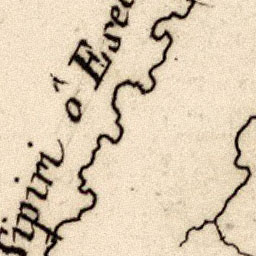 ſipiri ô Eſec